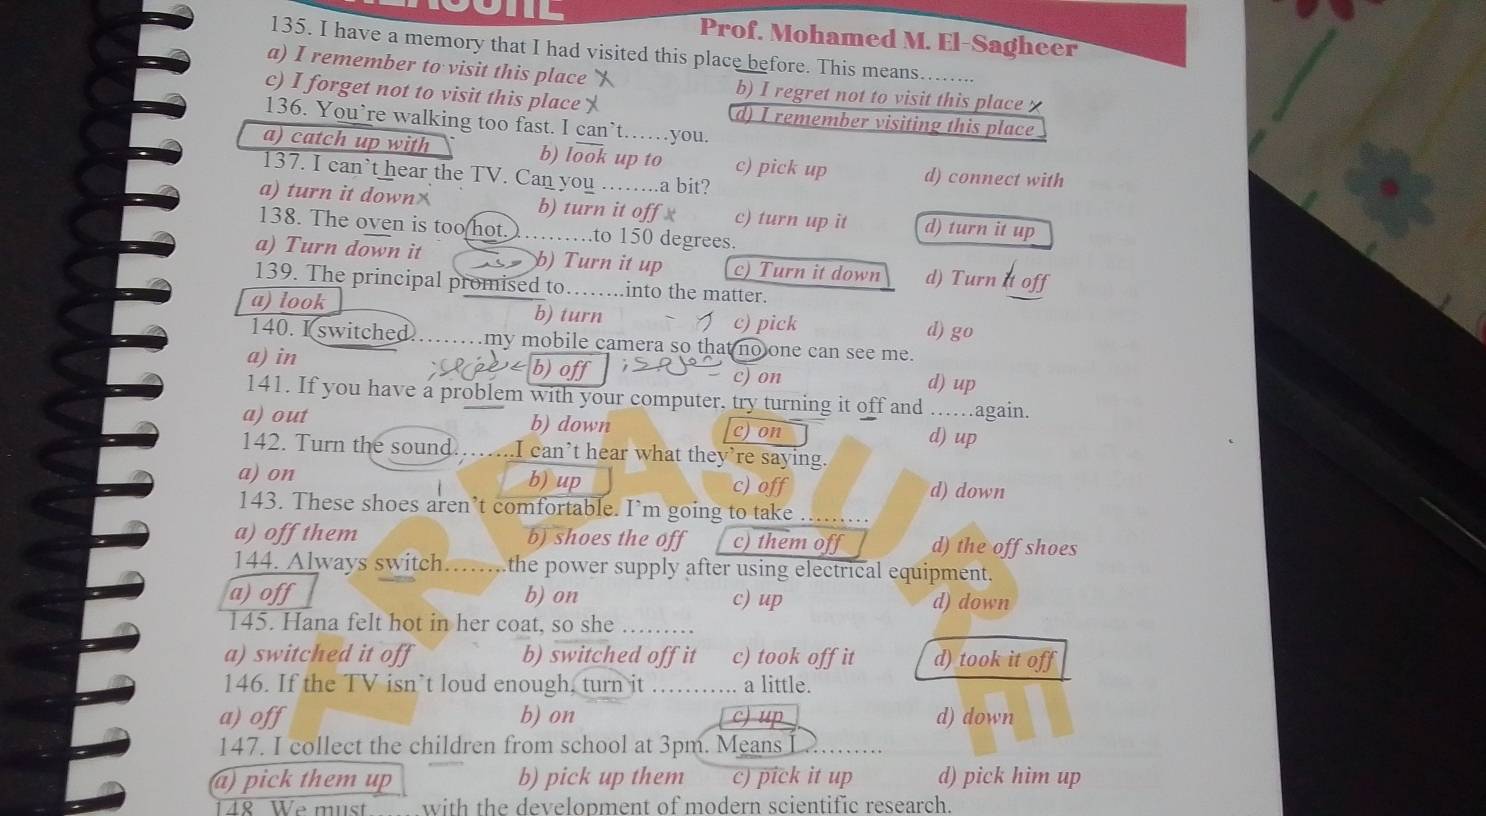 Prof. Mohamed M. El-Sagheer
135. I have a memory that I had visited this place before. This means........
a) I remember to visit this place
b) I regret not to visit this place
c) I forget not to visit this place
d) I remember visiting this place
136. You`re walking too fast. I can`t......you.
a) catch up with b) look up to c) pick up d) connect with
137. I can`t hear the TV. Can you ........a bit?
a) turn it down b) turn it off c) turn up it d) turn it up
138. The oven is too hot. ..........to 150 degrees.
a) Turn down it b) Turn it up c) Turn it down d) Turn it off
139. The principal promised to........into the matter.
a) look b) turn c) pick d) go
140. I switched..........my mobile camera so that no one can see me.
a) in b) off c) on d) up
141. If you have a problem with your computer, try turning it off and ......again.
a) out b) down c) on d) up
142. Turn the sound........I can`t hear what they`re saying.
a) on b) up c) off d) down
143. These shoes aren`t comfortable. I`m going to take .........
a) off them b) shoes the off c) them off d) the off shoes
144. Always switch........the power supply after using electrical equipment.
a) off b) on c) up d) down
145. Hana felt hot in her coat, so she .........
a) switched it off b) switched off it c) took off it d) took it off
146. If the TV isn`t loud enough, turn it ........... a little.
a) off b) on c) up d) down
147. I collect the children from school at 3pm. Means I ..........
a) pick them up b) pick up them c) pick it up d) pick him up
148. We must.......with the development of modern scientific research.
TREASURE